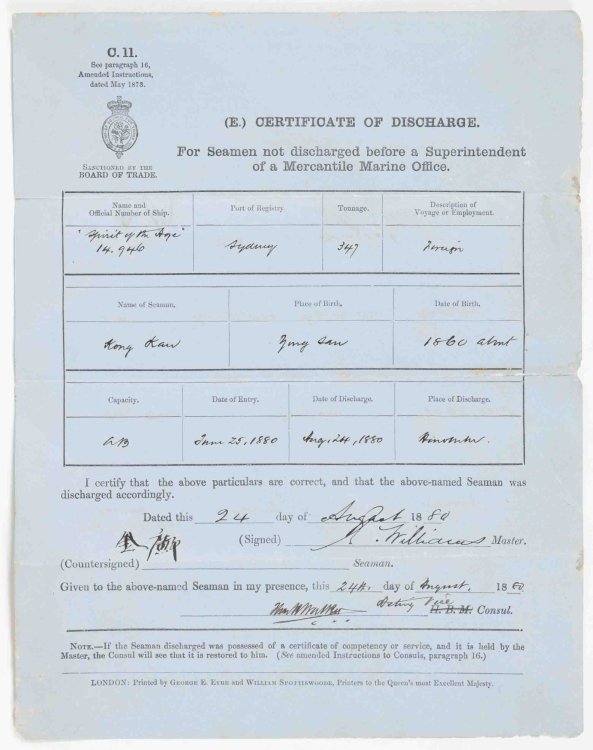 C. 11.
See paragraph 16,
Amended Instructions,
dated May 1873.
SANCTIONED BY THE
BOARD OF TRADE.
(E.) CERTIFICATE OF DISCHARGE.
For Seamen not discharged before a Superintendent
of a Mercantile Marine Office.
Name and
Official Number of Ship.
Port of Registry.
Tonnage.
Description of
Voyage or Employment.
"Spirit of the Age"
14.946
Sydney
347
Foreign
Name of Seaman.
Place of Birth.
Date of Birth.
Kong Kau
1860 about
Capacity.
Date of Entry.
Date of Discharge.
Place of Discharge.
AB
June 25, 1880
Aug. 24, 1880
Honolulu.
I certify that the above particulars are correct, and that the above-named Seaman was
discharged accordingly.
Dated this 24 day of August 1880
(Signed) Williams Master.
(Countersigned) Seaman.
Given to the above-named Seaman in my presence, this 24th. day of August, 1880.
Acting Vice
H.B.M. Consul.
NOTE.—If the Seaman discharged was possessed of a certificate of competency or service, and it is held by the
Master, the Consul will see that it is restored to him. (See amended Instructions to Consuls, paragraph 16.)
LONDON: Printed by GEORGE E. EYRE and WILLIAM SPOTTISWOODE, Printers to the Queen's most Excellent Majesty.